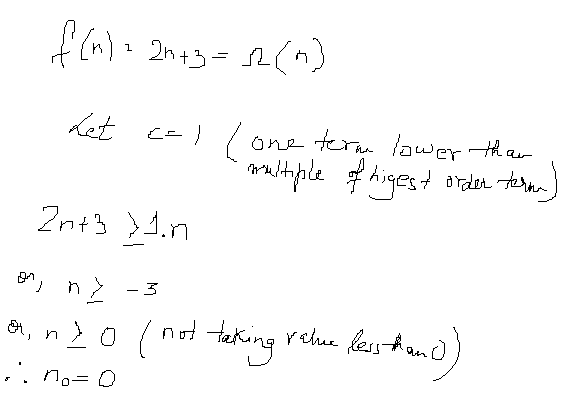 f(n) = 2n+3 = Ω(n)
Let c=1 (one term lower than
multiple of higest order term)
2n+3 ≥ 1.n
or, n ≥ -3
or, n ≥ 0 (not taking value less than 0)
∴ n₀=0